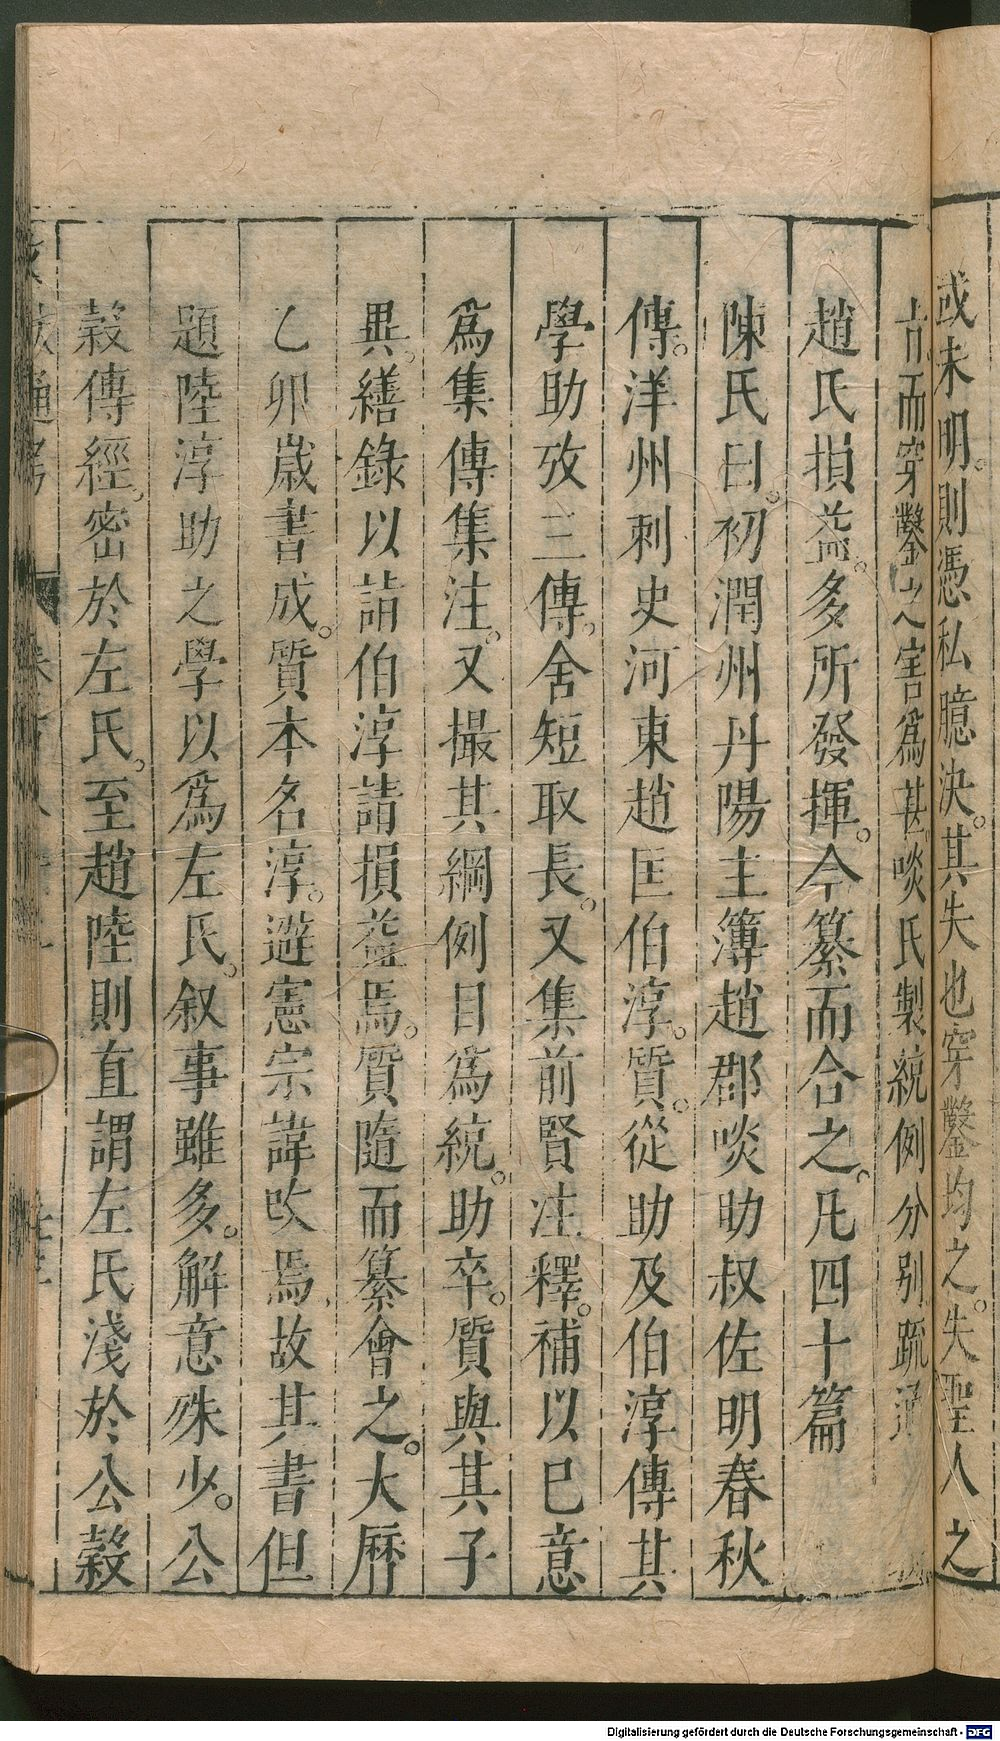 或未明則憑私臆決其失也穿鑿均之失聖人之
㫖而穿鑿之害爲甚啖氏製統例分别疏通
趙氏損益多所發揮今纂而合之凡四十篇
陳氏曰初潤州丹陽主簿趙郡啖助叔佐明春秋
傳洋州刺史河東趙匡伯淳質從助及伯淳傳其
學助攷三傳舍短取長又集前賢注釋補以已意
爲集傳集注又撮其綱例目爲統助卒質與其子
異繕錄以詣伯淳請損益焉質隨而纂會之大曆
乙卯歲書成質本名淳避憲宗諱改焉故其書但
題陸淳助之學以爲左氏叙事雖多解意殊少公
穀傳經密於左氏至趙陸則直謂左氏淺於公穀
通考
Digitalisierung gefördert durch die Deutsche Forschungsgemeinschaft - DFG